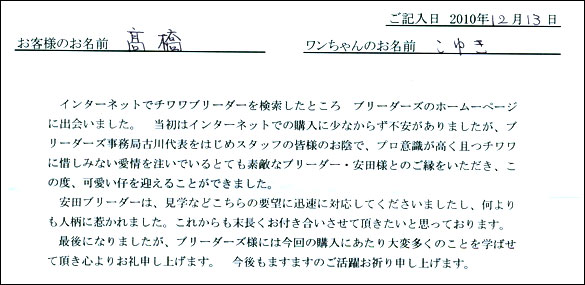 ご記入日 2010年12月13日
お客様のお名前 髙橋 ワンちゃんのお名前 こゆき
インターネットでチワワブリーダーを検索したところ ブリーダーズのホームーページ
に出会いました。 当初はインターネットでの購入に少なからず不安がありましたが、ブ
リーダーズ事務局古川代表をはじめスタッフの皆様のお陰で、プロ意識が高く且つチワワ
に惜しみない愛情を注いでいるとても素敵なブリーダー・安田様とのご縁をいただき、こ
の度、可愛い仔を迎えることができました。
安田ブリーダーは、見学などこちらの要望に迅速に対応してくださいましたし、何より
も人柄に惹かれました。これからも末長くお付き合いさせて頂きたいと思っております。
最後になりましたが、ブリーダーズ様には今回の購入にあたり大変多くのことを学ばせ
て頂き心よりお礼申し上げます。 今後もますますのご活躍お祈り申し上げます。